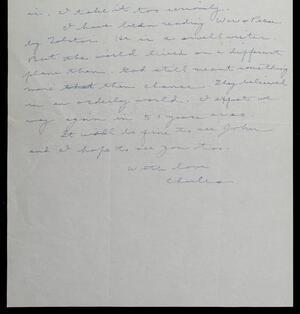 in. I take it too seriously.
I have been reading War & Peace
by Tolstoi. He is a swell writer.
But the world lived on a different
plane then. God still meant something
more that than chance. They believed
in an orderly world. I expect we
may again in 50 years or so.
It will be fine to see John
and I hope to see you too.
With love
Charles